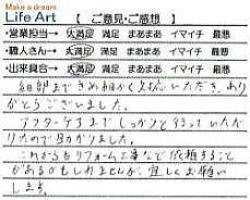 Make a dream
Life Art 【 ご意見・ご感想 】
・営業担当→ 大満足 満足 まあまあ イマイチ 最悪
・職人さん→ 大満足 満足 まあまあ イマイチ 最悪
・出来具合→ 大満足 満足 まあまあ イマイチ 最悪
細部まできめ細かく対応いただき、あり
がとうございました。
アフターケアまでしっかりと行っていただ
けたので助かりました。
これからもリフォーム工事など依頼すること
があるかもしれませんが、宜しくお願い
します。